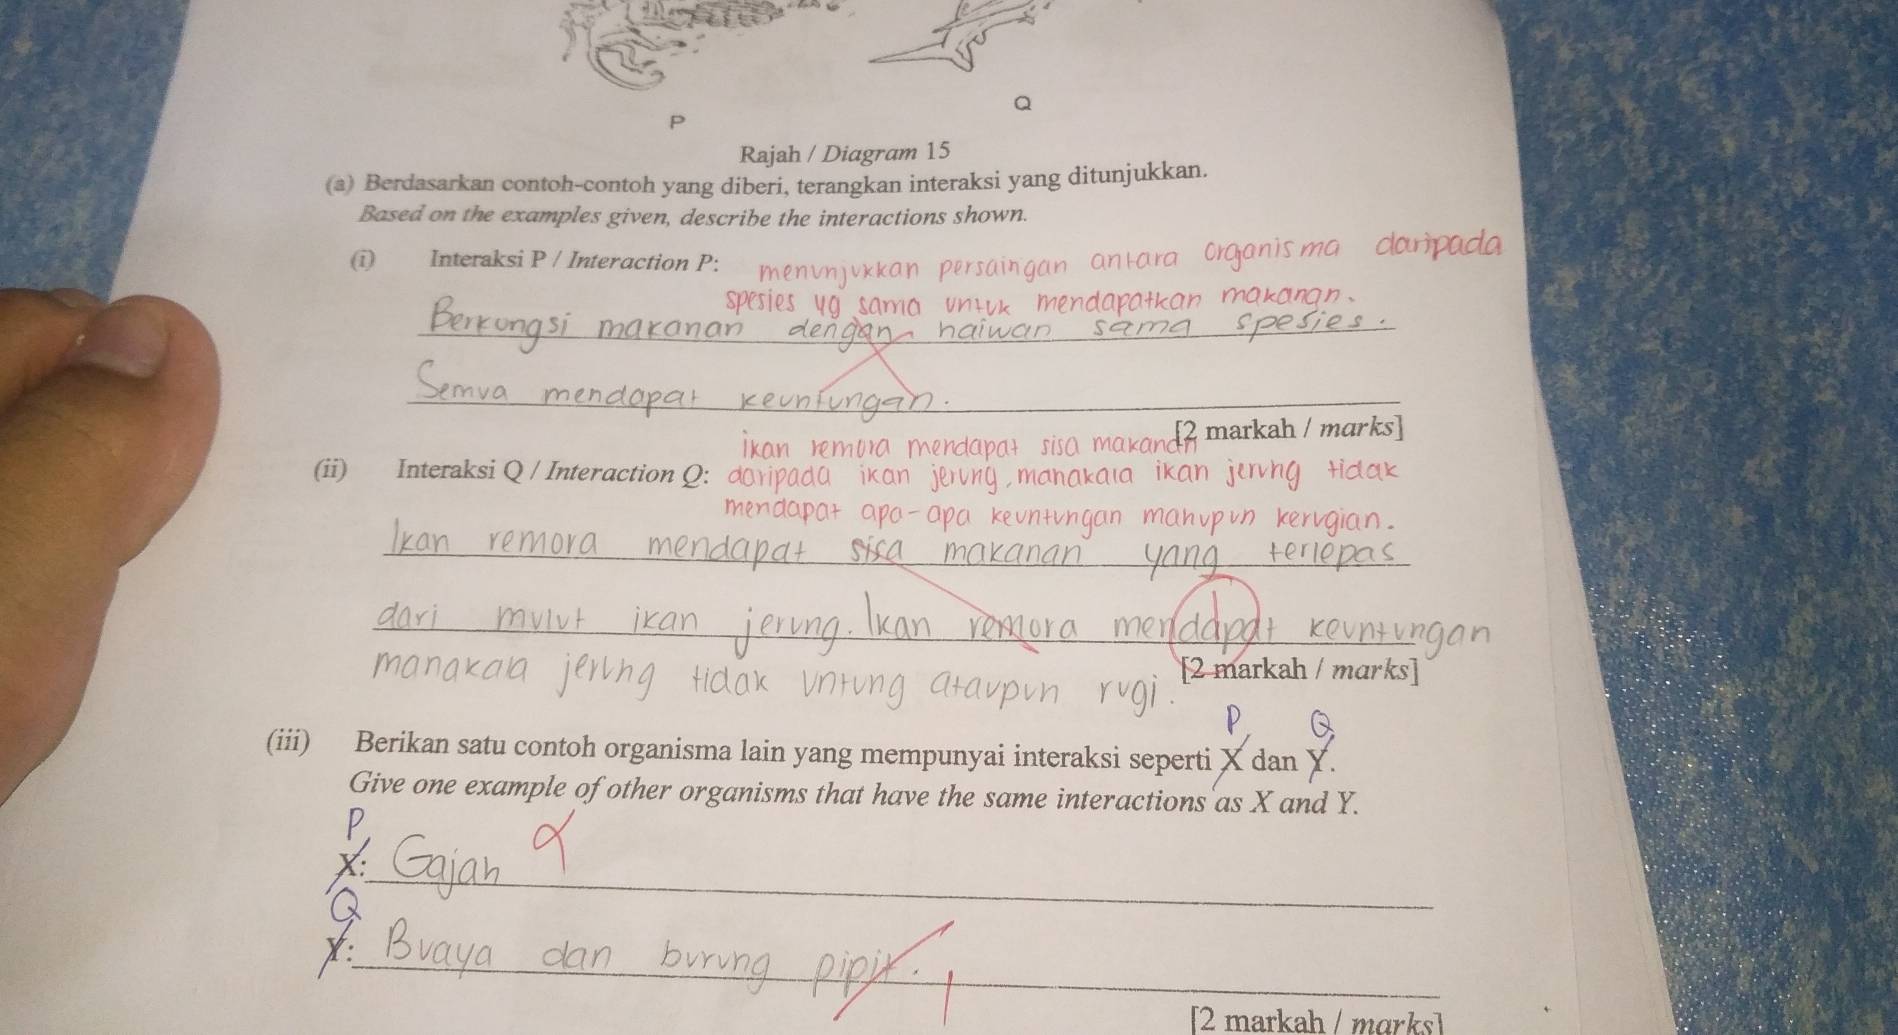 P
Q
Rajah / Diagram 15
(a) Berdasarkan contoh-contoh yang diberi, terangkan interaksi yang ditunjukkan.
Based on the examples given, describe the interactions shown.
(i) Interaksi P / Interaction P: menunjukkan persaingan antara organisma daripada
spesies yg sama untuk mendapatkan makanan.
Berkongsi makanan dengan haiwan sama spesies.
Semua mendapat keuntungan.
[2 markah / marks]
ikan remora mendapat sisa makanan
(ii) Interaksi Q / Interaction Q: daripada ikan jerung, manakala ikan jerung tidak
mendapat apa-apa keuntungan mahupun kerugian.
Ikan remora mendapat sisa makanan yang terlepas
dari mulut ikan jerung. Ikan remora mendapat keuntungan
manakala jerung tidak untung ataupun rugi.
[2 markah / marks]
P Q
(iii) Berikan satu contoh organisma lain yang mempunyai interaksi seperti X dan Y.
Give one example of other organisms that have the same interactions as X and Y.
P
X: Gajah
Q
Y: Buaya dan burung pipit. 1
[2 markah / marks]